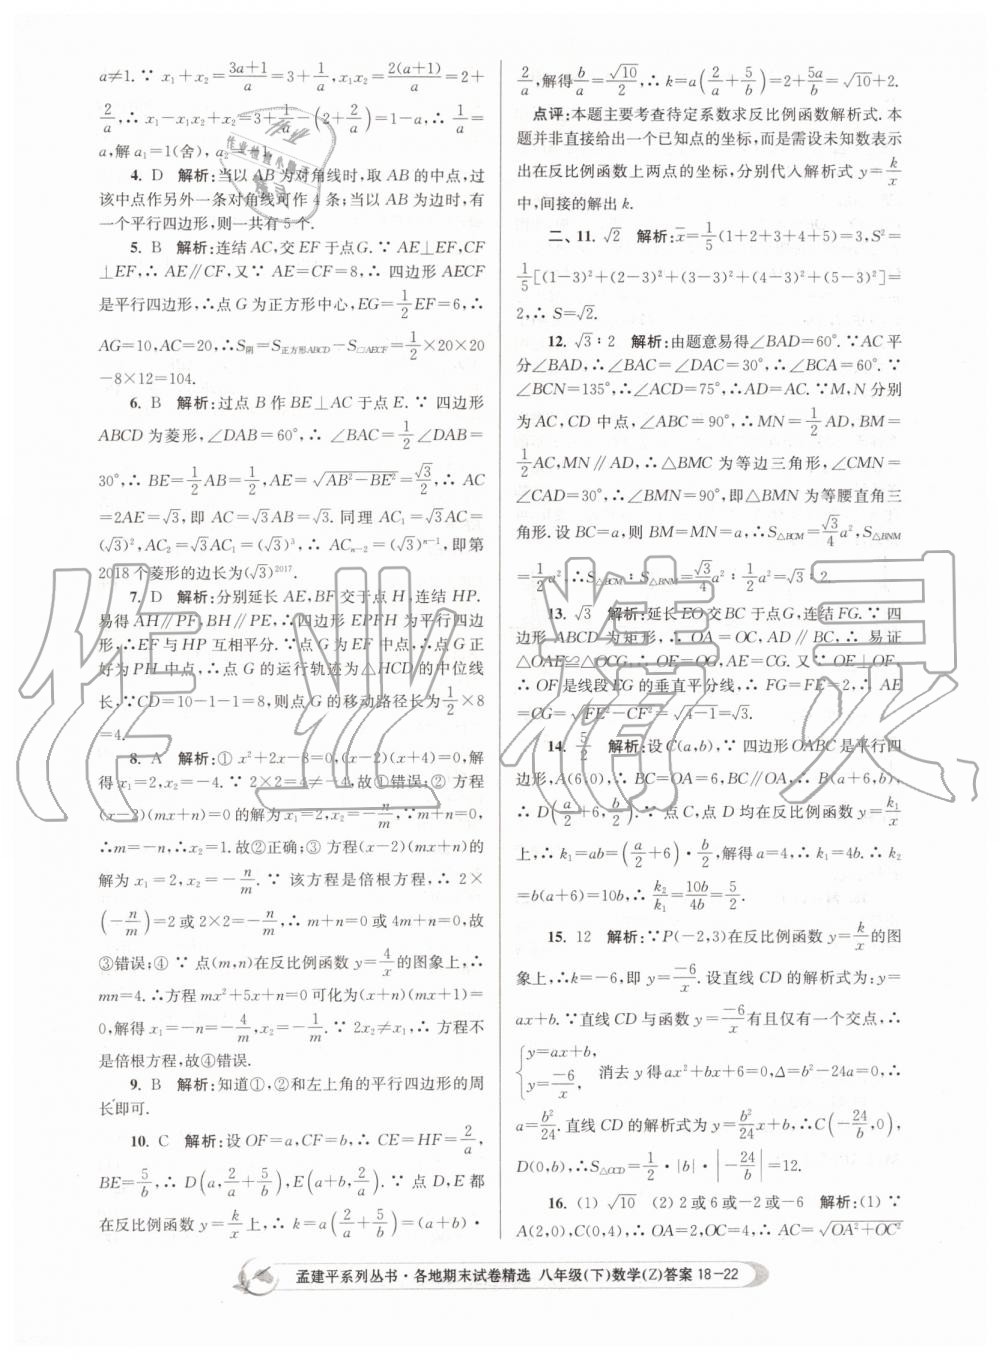 a≠1.∵ x₁+x₂=\frac{3a+1}{a}=3+\frac{1}{a},x₁x₂=\frac{2(a+1)}{a}=2+
\frac{2}{a},∴ x₁-x₁x₂+x₂=3+\frac{1}{a}-(2+\frac{2}{a})=1-a,∴ \frac{a-1}{a}=1-
a,解 a₁=1(舍),a₂=-1.
4. D 解析:当以 AB 为对角线时,取 AB 的中点,过
该中点作另外一条对角线可作 4 条;当以 AB 为边时,有
一个平行四边形,则一共有 5 个.
5. B 解析:连结 AC,交 EF 于点 G.∵ AE⊥EF,CF
⊥EF,∴ AE∥CF,又∵ AE=CF=8,∴ 四边形 AECF
是平行四边形,∴点 G 为正方形中心,EG=\frac{1}{2}EF=6,∴
AG=10,AC=20,∴S阴=S正方形ABCD-S▱AECF=\frac{1}{2}×20×20
-8×12=104.
6. B 解析:过点 B 作 BE⊥AC 于点 E.∵ 四边形
ABCD 为菱形,∠DAB=60°,∴ ∠BAC=\frac{1}{2}∠DAB=
30°,∴ BE=\frac{1}{2}AB=\frac{1}{2},AE=\sqrt{AB²-BE²}=\frac{\sqrt{3}}{2},∴ AC
=2AE=√3,即 AC=√3AB=√3.同理 AC₁=√3AC=
(√3)²,AC₂=√3AC₁=(√3)³,∴ ACₙ₋₂=(√3)ⁿ⁻¹,即第
2018 个菱形的边长为(√3)²⁰¹⁷.
7. D 解析:分别延长 AE,BF 交于点 H,连结 HP.
易得 AH∥PF,BH∥PE,∴四边形 EPFH 为平行四边
形,∴EF 与 HP 互相平分.∵点 G 为 EF 中点,∴点 G 正
好为 PH 中点,∴点 G 的运行轨迹为△HCD 的中位线
长.∵CD=10-1-1=8,则点 G 的移动路径长为\frac{1}{2}×8
=4.
8. A 解析:① x²+2x-8=0,(x-2)(x+4)=0,解
得 x₁=2,x₂=-4.∵ 2×2=4≠-4,故①错误;② 方程
(x-2)(mx+n)=0 的解为 x₁=2,x₂=-\frac{n}{m}.∵ m+n=0,
∴m=-n,∴x₂=1.故②正确;③ 方程(x-2)(mx+n)的
解为 x₁=2,x₂=-\frac{n}{m}.∵ 该方程是倍根方程,∴ 2×
(-\frac{n}{m})=2 或 2×2=-\frac{n}{m},∴ m+n=0 或 4m+n=0,故
③错误;④ ∵ 点(m,n)在反比例函数 y=\frac{4}{x}的图象上,∴
mn=4.∴方程 mx²+5x+n=0 可化为(x+n)(mx+1)=
0,解得 x₁=-n=-\frac{4}{m},x₂=-\frac{1}{m}.∵ 2x₂≠x₁,∴ 方程不
是倍根方程,故④错误.
9. B 解析:知道①,②和左上角的平行四边形的周
长即可.
10. C 解析:设 OF=a,CF=b,∴ CE=HF=\frac{2}{a},
BE=\frac{5}{b},∴ D(a,\frac{2}{a}+\frac{5}{b}),E(a+b,\frac{2}{a}).∵ 点 D,E 都
在反比例函数 y=\frac{k}{x}上,∴ k=a(\frac{2}{a}+\frac{5}{b})=(a+b)·
\frac{2}{a},解得\frac{b}{a}=\frac{\sqrt{10}}{2},∴ k=a(\frac{2}{a}+\frac{5}{b})=2+\frac{5a}{b}=√10+2.
点评:本题主要考查待定系数求反比例函数解析式.本
题并非直接给出一个已知点的坐标,而是需设未知数表示
出在反比例函数上两点的坐标,分别代人解析式 y=\frac{k}{x}
中,间接的解出 k.
二、11. √2 解析:x̄=\frac{1}{5}(1+2+3+4+5)=3,S²=
\frac{1}{5}[(1-3)²+(2-3)²+(3-3)²+(4-3)²+(5-3)²]=
2,∴ S=√2.
12. √3∶2 解析:由题意易得∠BAD=60°.∵AC 平
分∠BAD,∴∠BAC=∠DAC=30°,∴∠BCA=60°.∵
∠BCN=135°,∴∠ACD=75°,∴AD=AC.∵M,N 分别
为 AC,CD 中点,∠ABC=90°,∴MN=\frac{1}{2}AD,BM=
\frac{1}{2}AC,MN∥AD,∴△BMC 为等边三角形,∠CMN=
∠CAD=30°,∴∠BMN=90°,即△BMN 为等腰直角三
角形.设 BC=a,则 BM=MN=a,∴S△BCM=\frac{\sqrt{3}}{4}a²,S△BNM
=\frac{1}{2}a²,∴S△BCM∶S△BNM=\frac{\sqrt{3}}{4}a²∶\frac{1}{2}a²=√3∶2.
13. √3 解析:延长 EO 交 BC 于点 G,连结 FG.∵ 四
边形 ABCD 为矩形,∴ OA=OC,AD∥BC,∴ 易证
△OAE≌△OCG,∴ OE=OG,AE=CG.又∵ OE⊥OF,
∴ OF 是线段 EG 的垂直平分线,∴ FG=FE=2,∴ AE
=CG=\sqrt{FE²-CF²}=\sqrt{4-1}=√3.
14. \frac{5}{2} 解析:设 C(a,b),∵ 四边形 OABC 是平行四
边形,A(6,0),∴ BC=OA=6,BC∥OA,∴ B(a+6,b),
∴ D(\frac{a}{2}+6,\frac{b}{2}).∵ 点 C,点 D 均在反比例函数 y=\frac{k₁}{x}
上,∴ k₁=ab=(\frac{a}{2}+6)·\frac{b}{2},解得 a=4,∴ k₁=4b.∴ k₂
=b(a+6)=10b,∴ \frac{k₂}{k₁}=\frac{10b}{4b}=\frac{5}{2}.
15. 12 解析:∵P(-2,3)在反比例函数 y=\frac{k}{x}的图
象上,∴k=-6,即 y=\frac{-6}{x}.设直线 CD 的解析式为:y=
ax+b.∵直线 CD 与函数 y=\frac{-6}{x}有且仅有一个交点,∴
{y=ax+b, y=\frac{-6}{x} 消去 y 得 ax²+bx+6=0,Δ=b²-24a=0,∴
a=\frac{b²}{24}.直线 CD 的解析式为 y=\frac{b²}{24}x+b,∴C(-\frac{24}{b},0),
D(0,b),∴S△OCD=\frac{1}{2}·|b|·|-\frac{24}{b}|=12.
16. (1) √10 (2) 2 或 6 或-2 或-6 解析:(1) ∵
A(2,0),C(0,4),∴ OA=2,OC=4,∴ AC=\sqrt{OA²+OC²}
孟建平系列丛书·各地期末试卷精选 八年级(下)数学(Z)答案 18-22
作业精灵